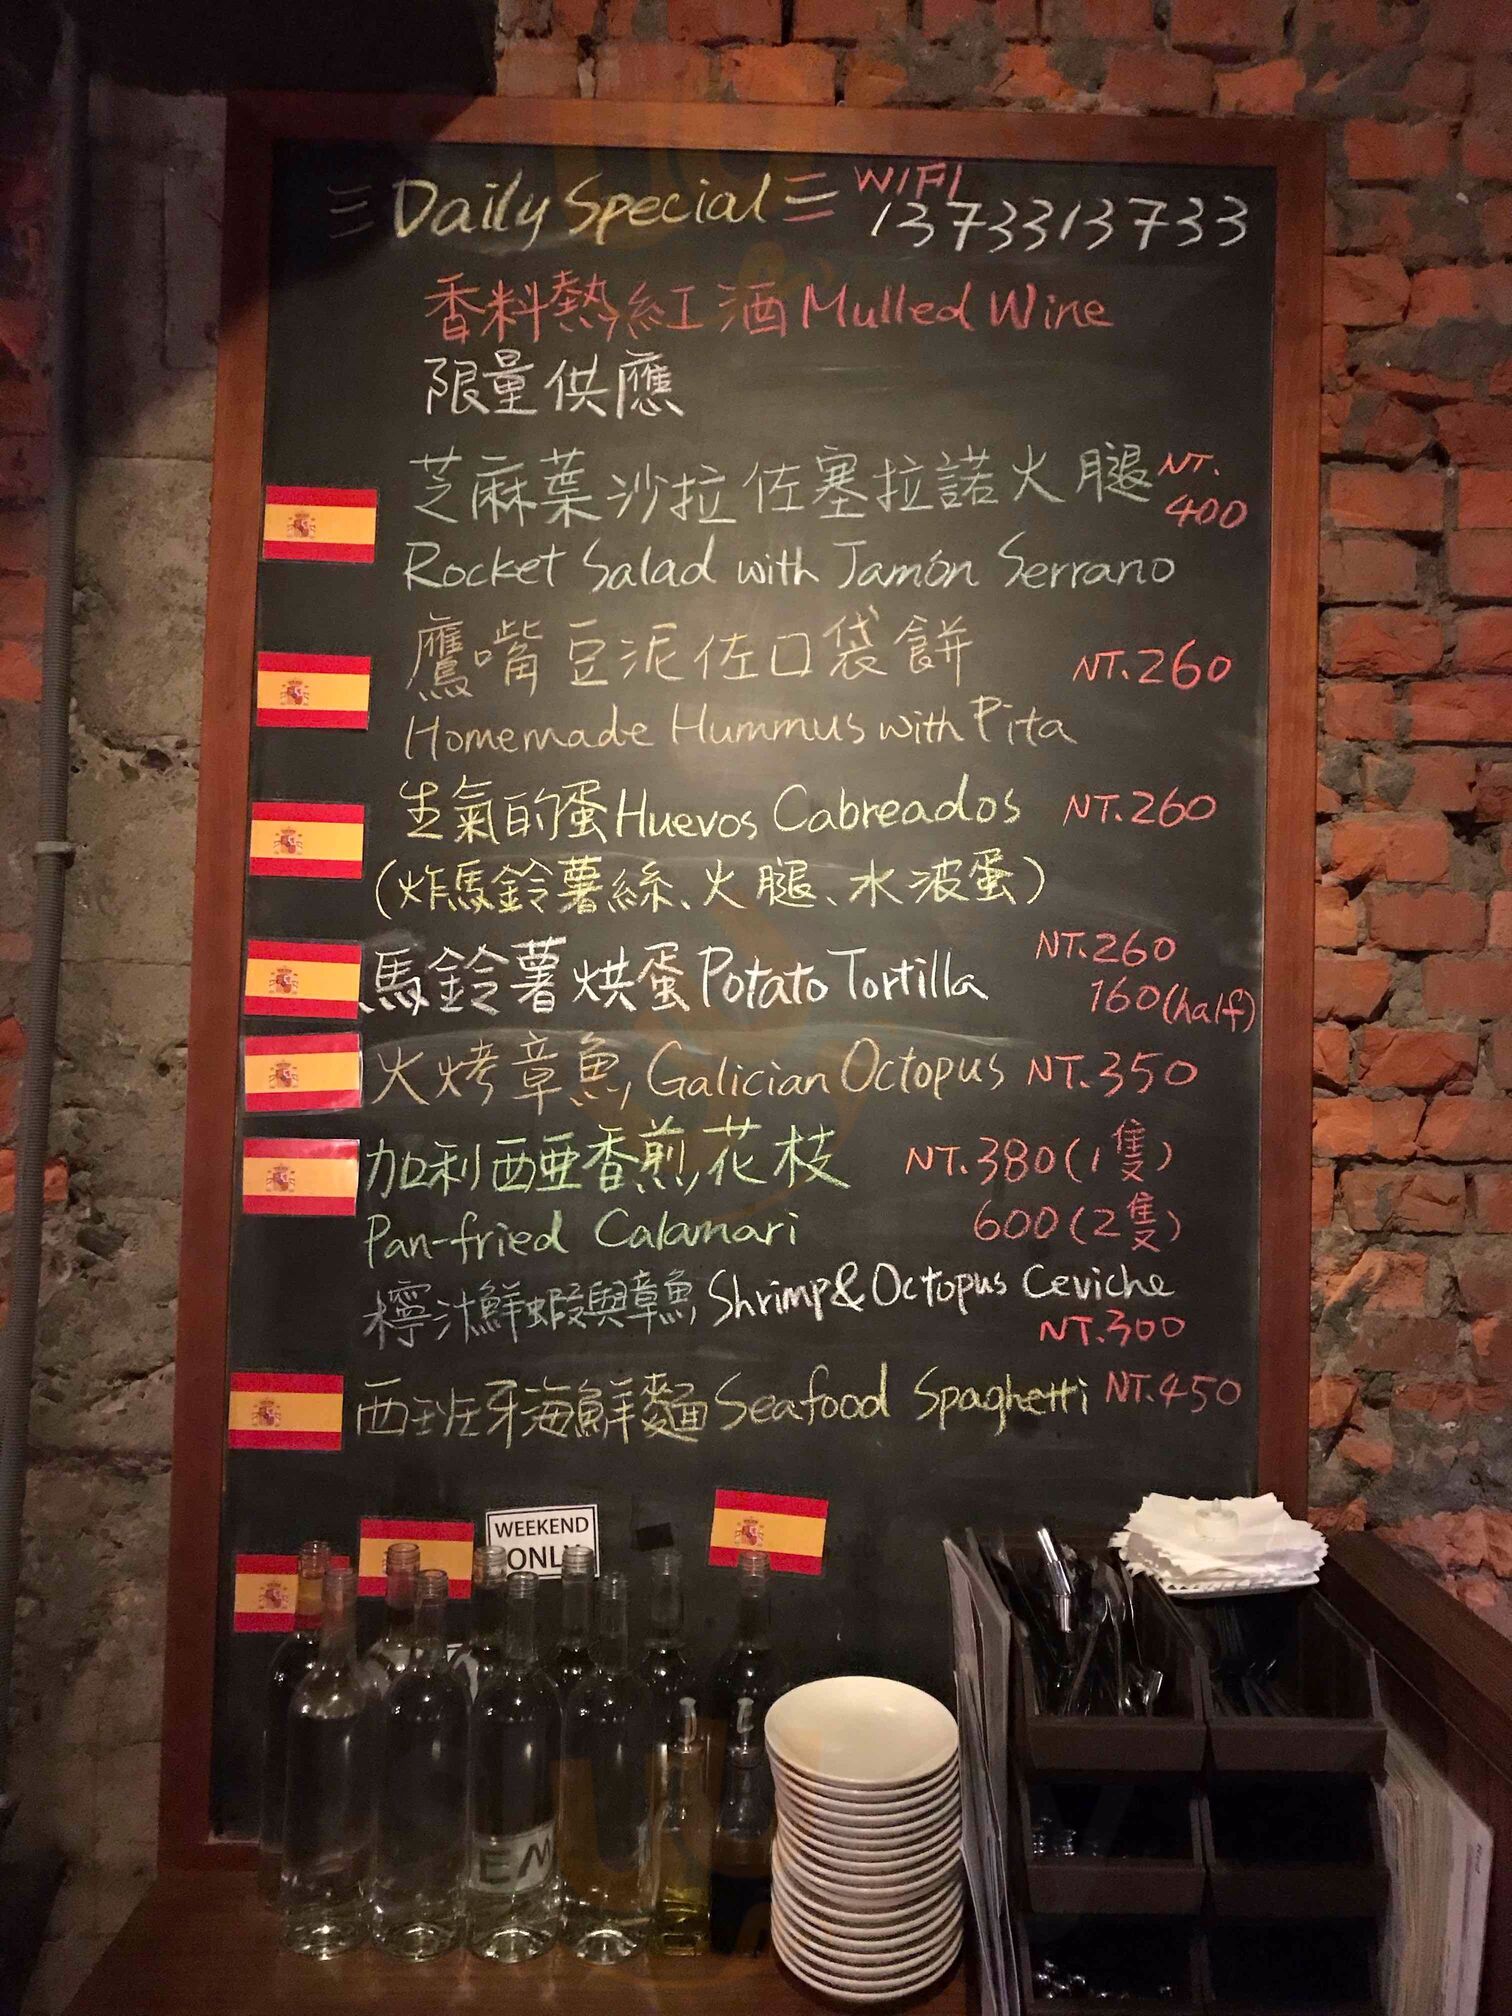 Daily Special WIFI 1373313733
香料熱紅酒 Mulled Wine
限量供應
芝麻葉沙拉佐塞拉諾火腿 NT. 400
Rocket Salad with Jamón Serrano
鷹嘴豆泥佐口袋餅 NT.260
Homemade Hummus with Pita
生氣的蛋 Huevos Cabreados NT.260
(炸馬鈴薯絲、火腿、水波蛋)
馬鈴薯烘蛋 Potato Tortilla NT.260
160(half)
火烤章魚 Galician Octopus NT.350
加利西亞香煎花枝 NT.380(1隻)
Pan-fried Calamari 600(2隻)
檸汁鮮蝦與章魚 Shrimp&Octopus Ceviche
NT.300
西班牙海鮮麵 Seafood Spaghetti NT.450
WEEKEND
ONLY